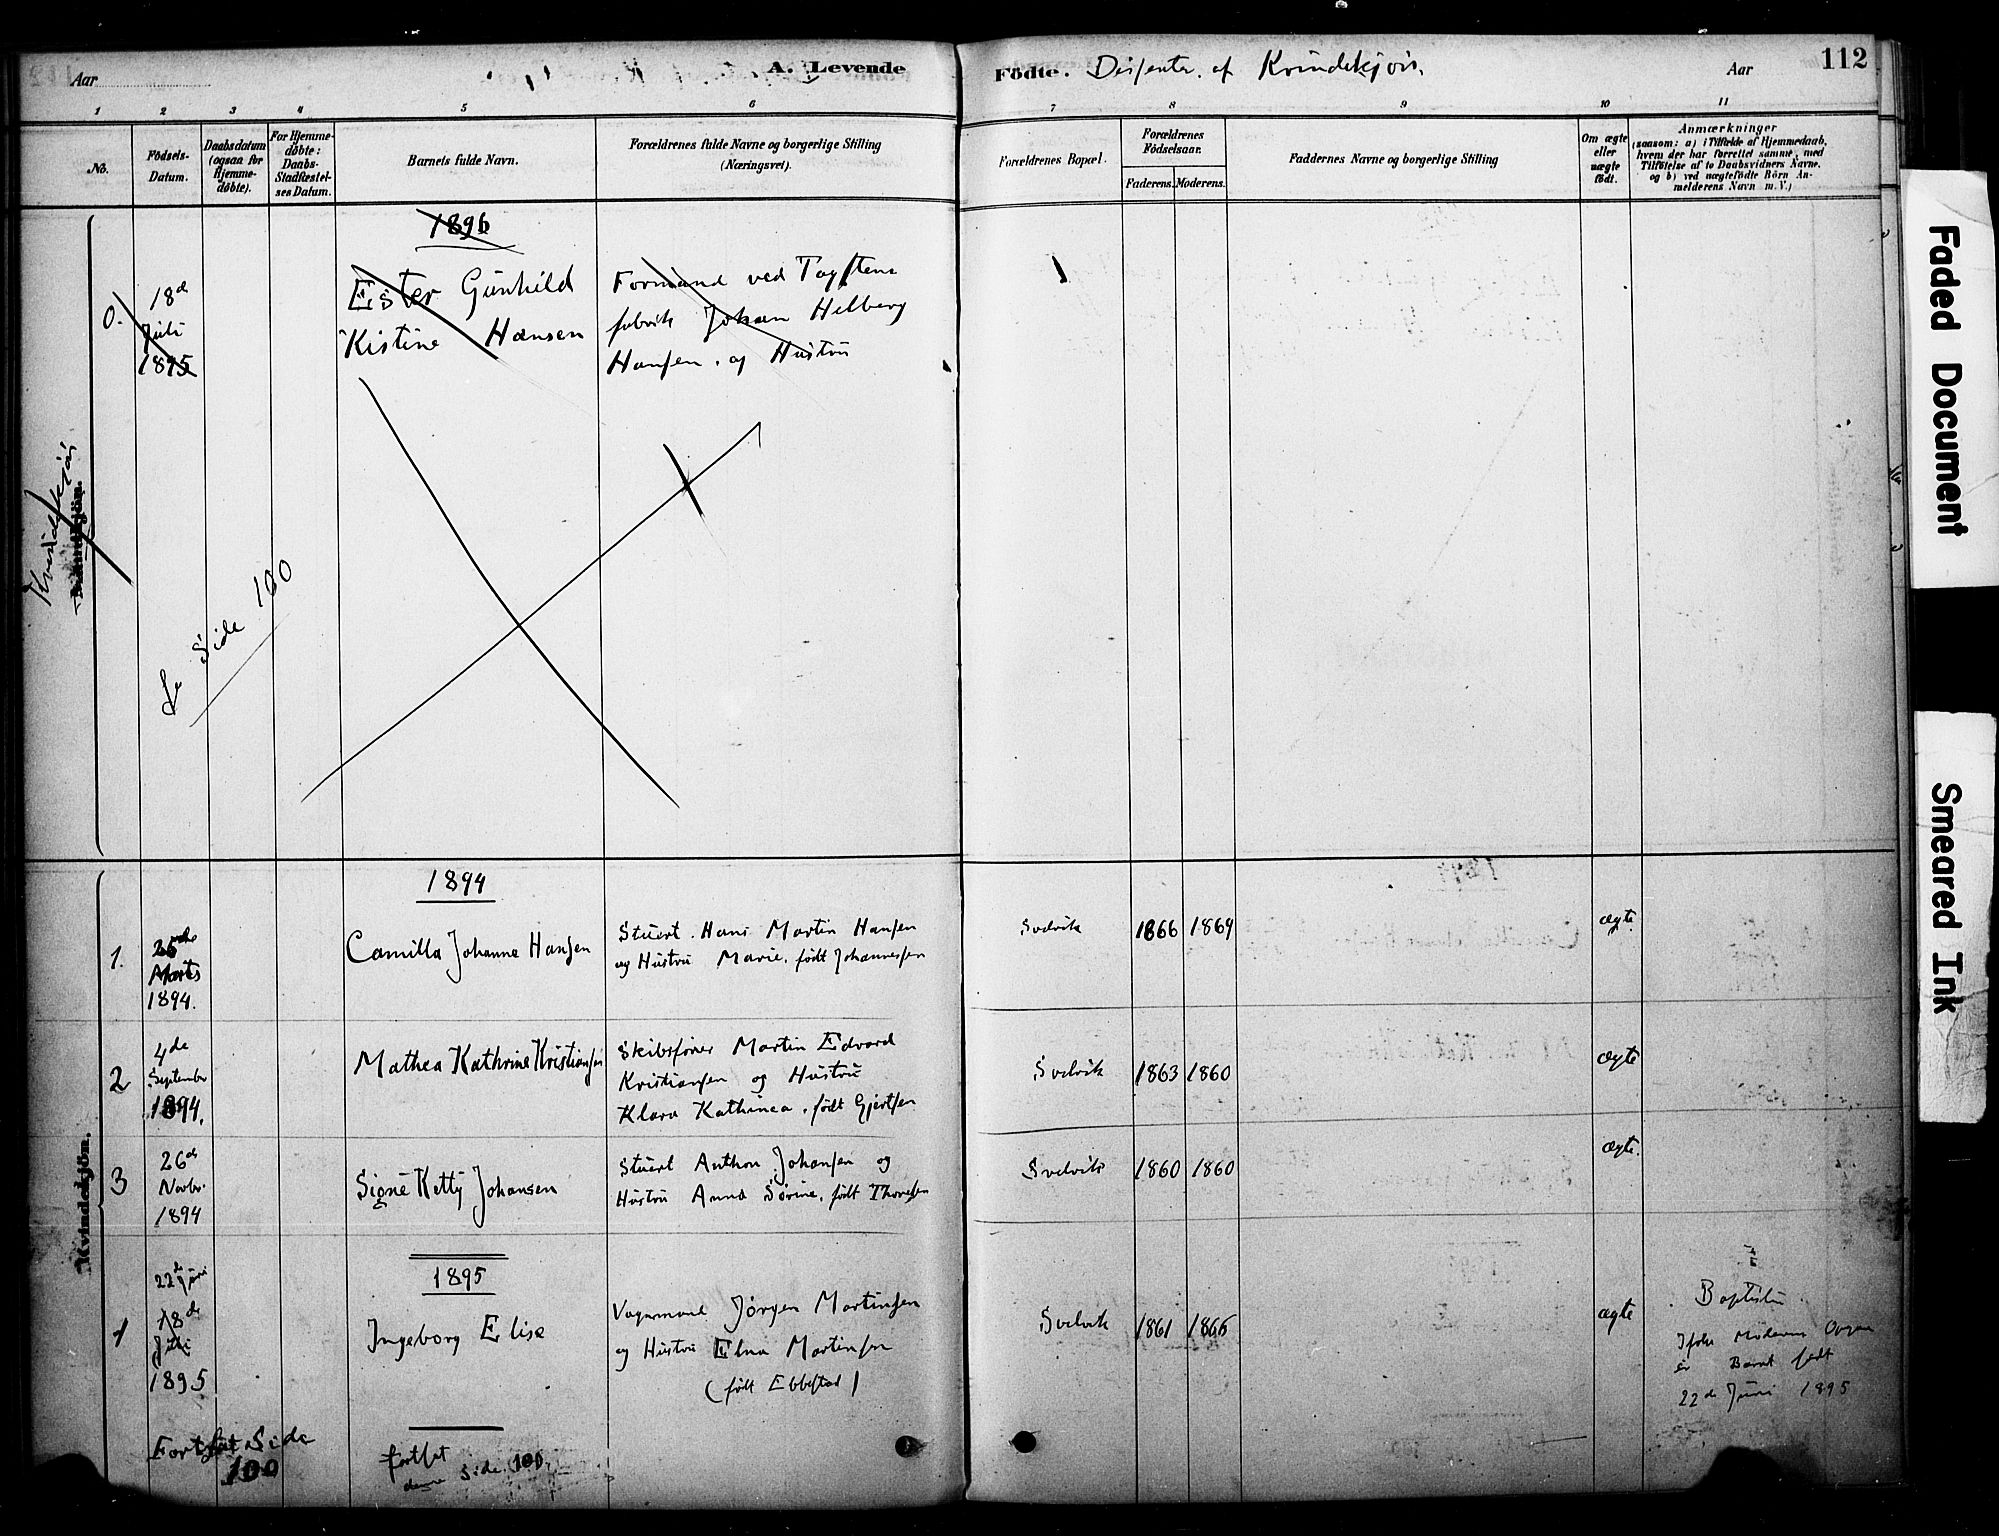 Aar
A. Levende
Fødte. Dissenter. af Kvindekjøn.
Aar
112
1 2 3 4 5 6 7 8 9 10 11
No.
Födsels-
Datum.
Daabsdatum
(ogsaa for
Hjemme-
döbte).
For Hjemme-
döbte:
Daabs-
Stadfæstel-
ses Datum.
Barnets fulde Navn.
Forældrenes fulde Navne og borgerlige Stilling
(Næringsvei).
Forældrenes Bopæl.
Forældrenes
Födselsaar.
Faderens. Moderens.
Faddernes Navne og borgerlige Stilling
Om ægte
eller
uægte
födt.
Anmærkninger
(saasom: a) i Tilfælde af Hjemmedaab,
hvem der har forrettet samme, med
Tilföielse af to Daabsvidners Navne,
og b) ved uægtefödte Börn An-
melderens Navn m.V.)
Kvindekjøn
1896
0.
18de
Juli
1895
Ester Gunhild
Kistine Hansen
Formand ved
fabrik Johan Helberg
Hansen. og Hustru
Se Side 100
Kvindekjön.
1894
1.
Marts
1894.
Camilla Johanne Hansen
Stuert. Hans Martin Hansen
og Hustru Marie. født Johannessen
Svelvik
1866 1869
ægte.
2
4de
September
1894.
Mathea Kathrine Kristiansen
Skibsfører Martin Edvard
Kristiansen og Hustru
Klara Kathinca. født Gjertsen
Svelvik
1863 1860
ægte
3
26de
Novbr.
1894
Signe Ketty Johansen
Stuert Anthon Johansen og
Hustru Anna Sørine. født Thoresen
Svelvik
1860 1860
ægte.
1895
1
22de Juni
18de
Juli
1895
Ingeborg Elise
Vognmand Jørgen Martinsen
og Hustru Elna Martinsen
(født Ebbestad)
Svelvik
1861 1866
ægte
Baptister.
Ifølge Moderens Opgave
er Barnet født
22de Juni 1895
Fortsat Side
100
fortsat
denne Side 100
Faded Document
Smeared Ink